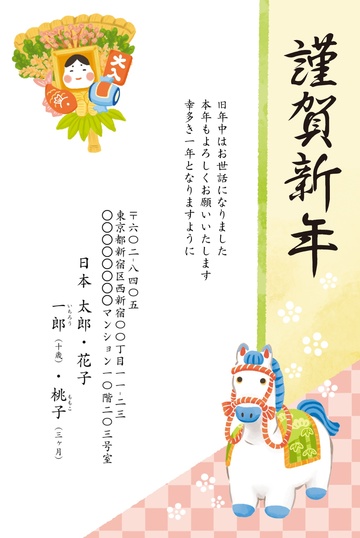 謹賀新年
旧年中はお世話になりました
本年もよろしくお願いいたします
幸多き一年となりますように
大入
〒六〇二-八四〇五
東京都新宿区西新宿〇〇丁目一一-二三
〇〇〇〇〇〇〇マンション一〇階二〇三号室
日本 太郎・花子
一郎(いちろう)(十歳)・桃子(ももこ)(三ヶ月)